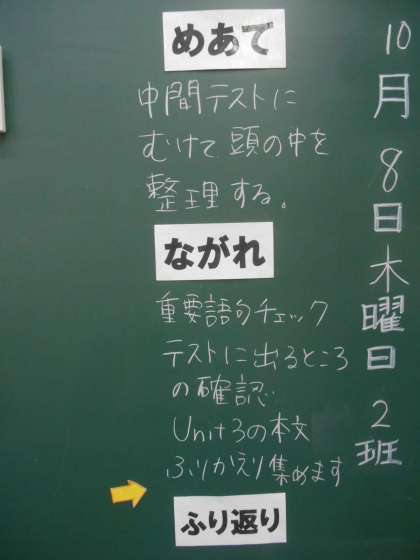 10月8日木曜日 2班
めあて
中間テストに
むけて頭の中を
整理する。
ながれ
重要語句チェック
テストに出るところ
の確認
Unit3の本文
ふりかえり集めます
ふり返り